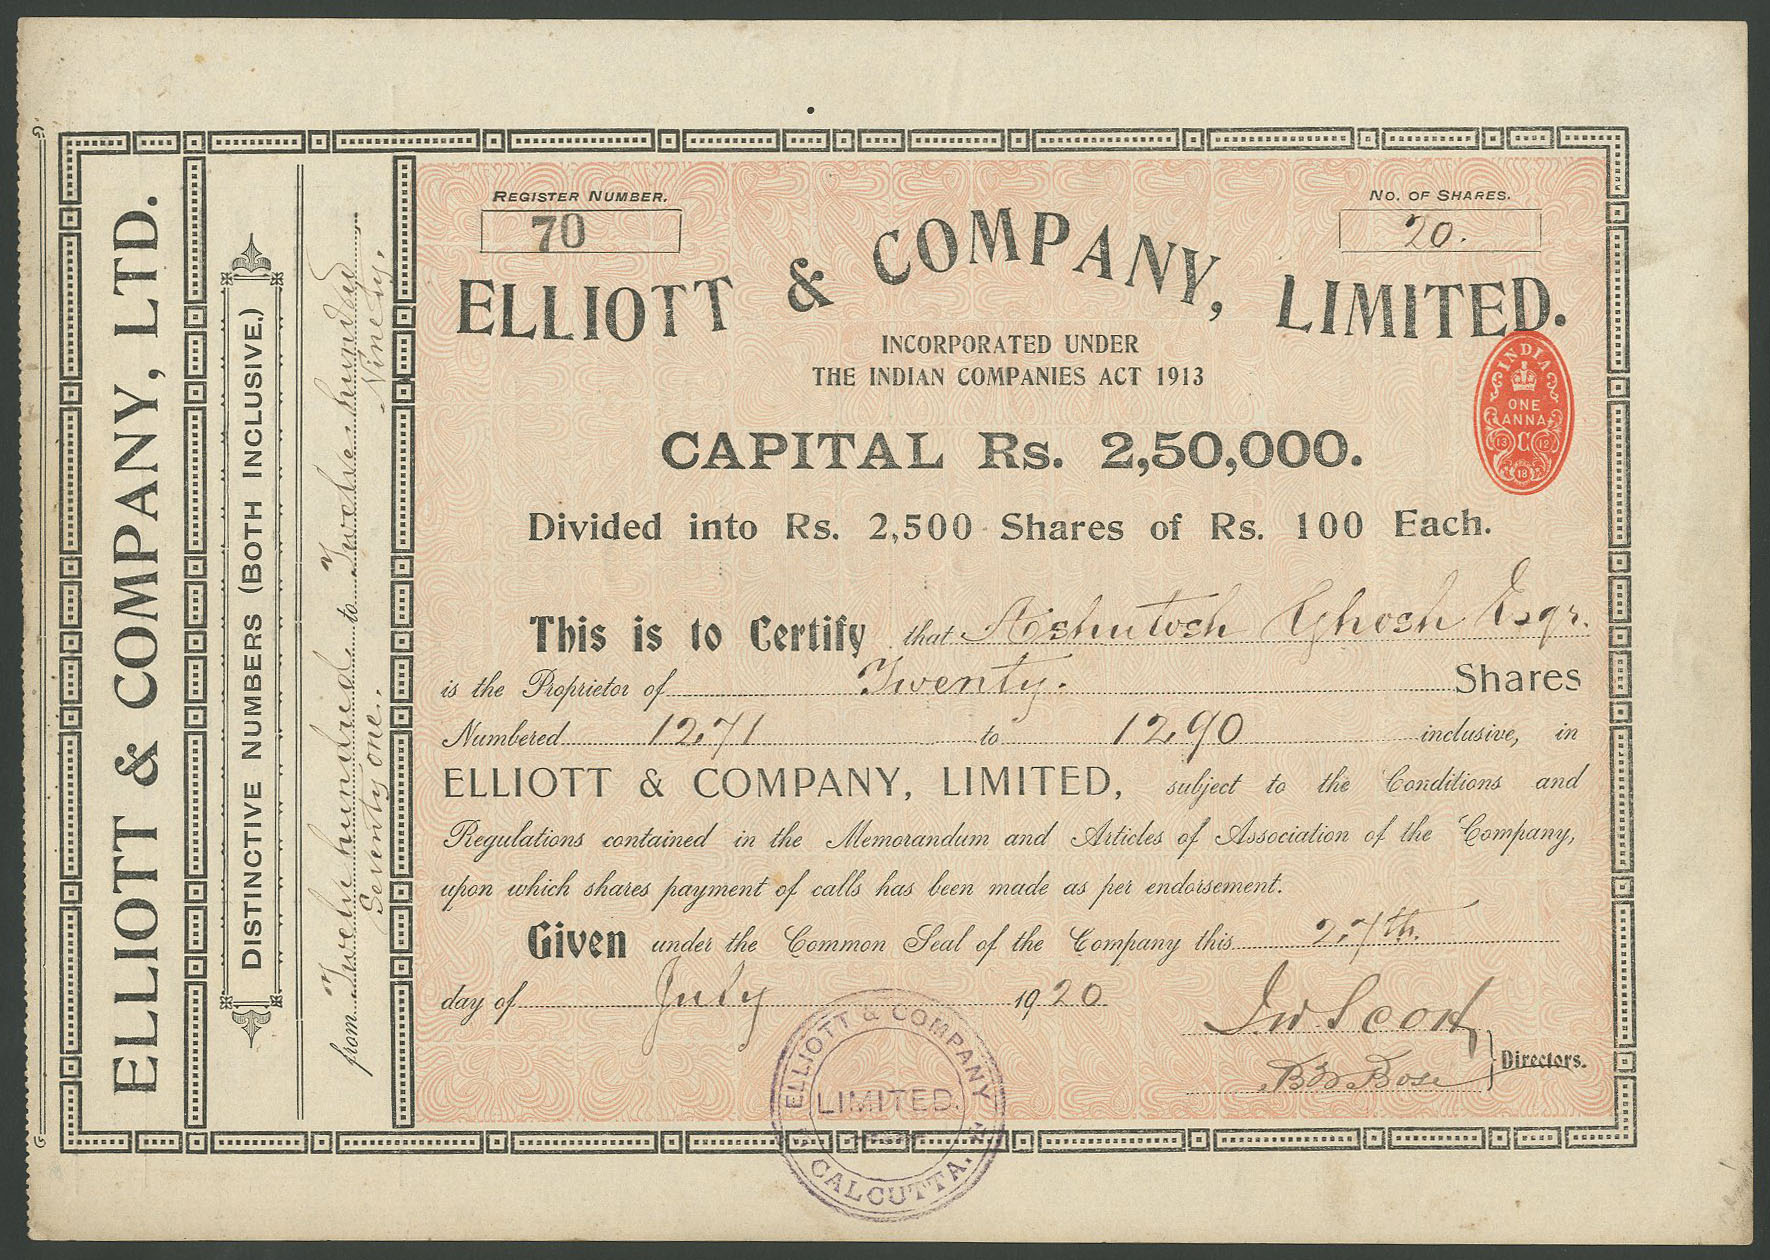 ELLIOTT & COMPANY, LTD.
DISTINCTIVE NUMBERS (BOTH INCLUSIVE.)
from Twelve hundred to Twelve hundred
Seventy one. Ninety.
REGISTER NUMBER.
70
NO. OF SHARES.
20.
ELLIOTT & COMPANY, LIMITED.
INCORPORATED UNDER
THE INDIAN COMPANIES ACT 1913
INDIA
ONE
ANNA
13 C 12
18
CAPITAL Rs. 2,50,000.
Divided into Rs. 2,500 Shares of Rs. 100 Each.
This is to Certify that Ashutosh Ghosh Esqr.
is the Proprietor of Twenty. Shares
Numbered 1271 to 1290 inclusive, in
ELLIOTT & COMPANY, LIMITED, subject to the Conditions and
Regulations contained in the Memorandum and Articles of Association of the Company,
upon which shares payment of calls has been made as per endorsement.
Given under the Common Seal of the Company this 27th
day of July 1920
Scott
Bose
Directors.
ELLIOTT & COMPANY
LIMITED.
CALCUTTA.